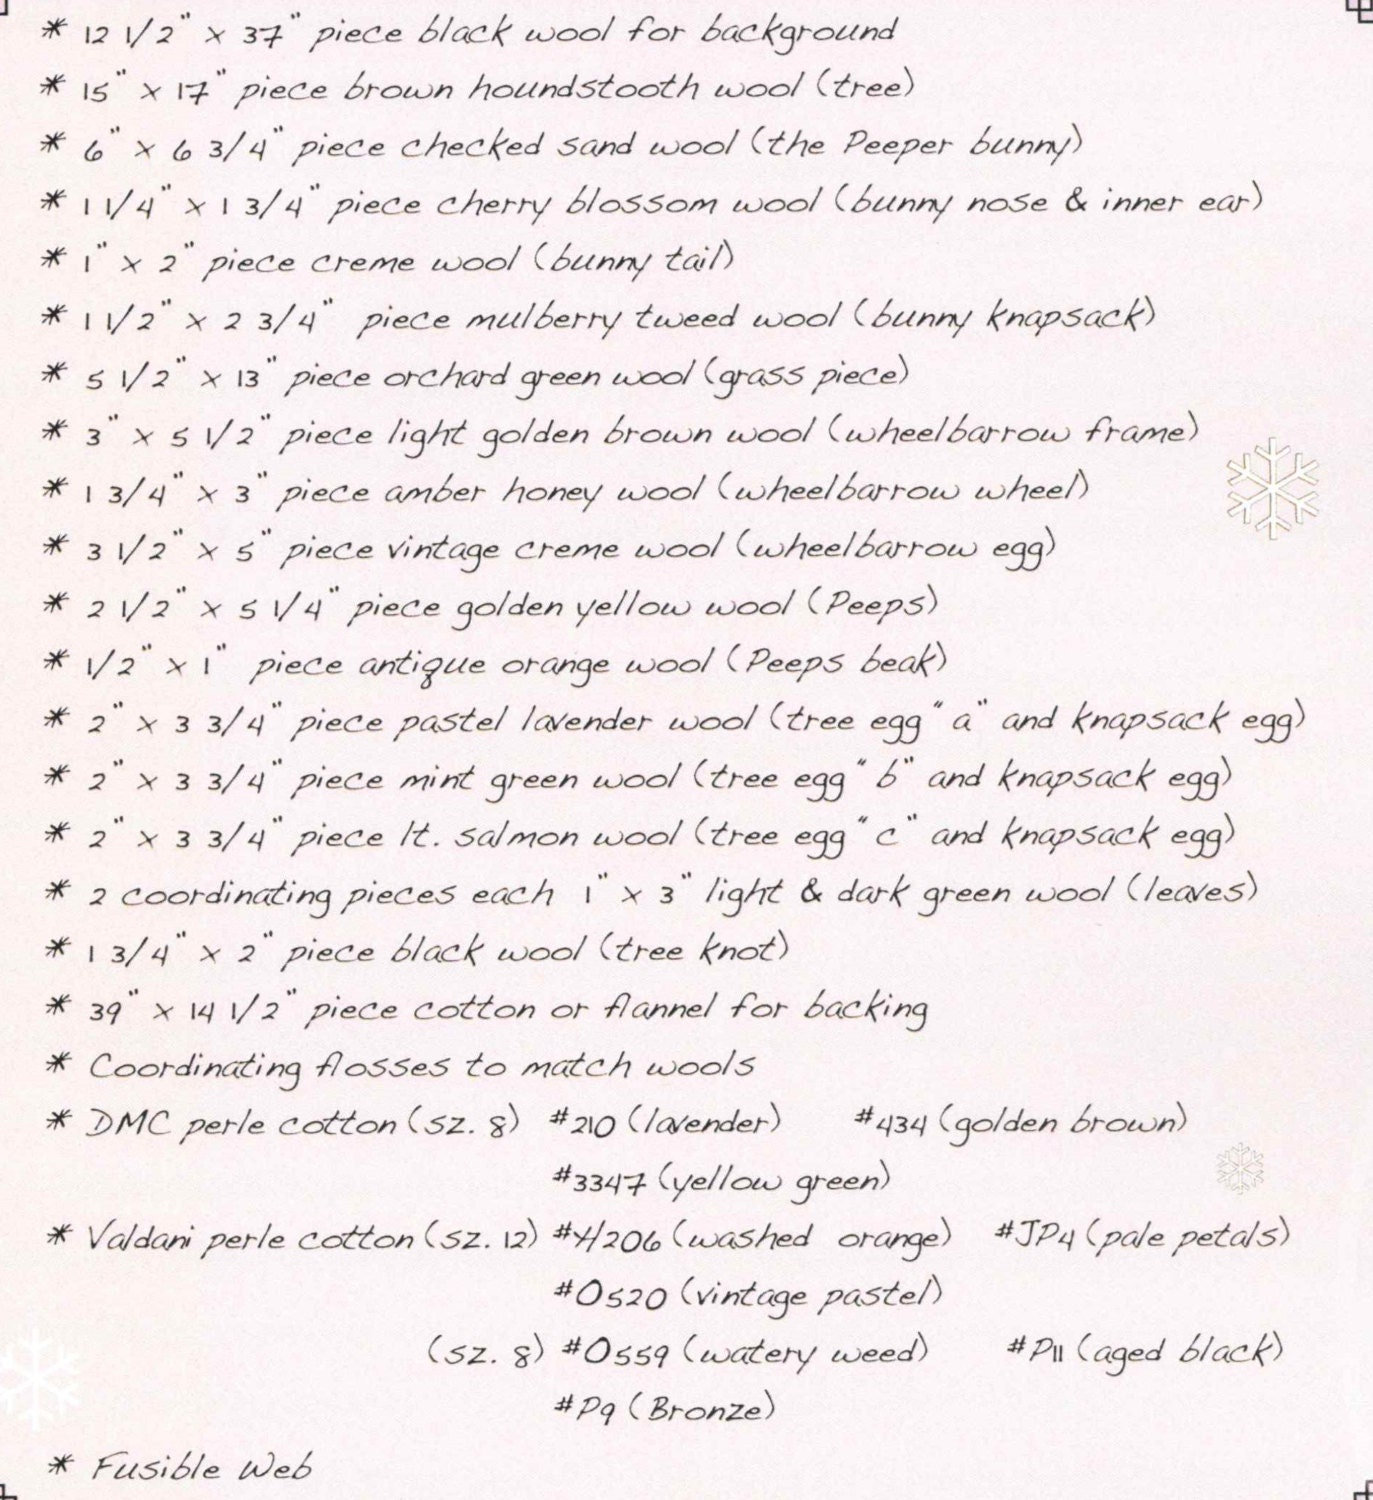 * 12 1/2" x 37" piece black wool for background
* 15" x 17" piece brown houndstooth wool (tree)
* 6" x 6 3/4" piece checked sand wool (the Peeper bunny)
* 1 1/4" x 1 3/4" piece cherry blossom wool (bunny nose & inner ear)
* 1" x 2" piece creme wool (bunny tail)
* 1 1/2" x 2 3/4" piece mulberry tweed wool (bunny knapsack)
* 5 1/2" x 13" piece orchard green wool (grass piece)
* 3" x 5 1/2" piece light golden brown wool (wheelbarrow frame)
* 1 3/4" x 3" piece amber honey wool (wheelbarrow wheel)
* 3 1/2" x 5" piece vintage creme wool (wheelbarrow egg)
* 2 1/2" x 5 1/4" piece golden yellow wool (Peeps)
* 1/2" x 1" piece antique orange wool (Peeps beak)
* 2" x 3 3/4" piece pastel lavender wool (tree egg "a" and knapsack egg)
* 2" x 3 3/4" piece mint green wool (tree egg "b" and knapsack egg)
* 2" x 3 3/4" piece lt. salmon wool (tree egg "c" and knapsack egg)
* 2 coordinating pieces each 1" x 3" light & dark green wool (leaves)
* 1 3/4" x 2" piece black wool (tree knot)
* 39" x 14 1/2" piece cotton or flannel for backing
* Coordinating flosses to match wools
* DMC perle cotton (sz. 8) #210 (lavender) #434 (golden brown)
#3347 (yellow green)
* Valdani perle cotton (sz. 12) #H206 (washed orange) #JP4 (pale petals)
#O520 (vintage pastel)
(sz. 8) #O559 (watery weed) #P11 (aged black)
#P9 (Bronze)
* Fusible Web